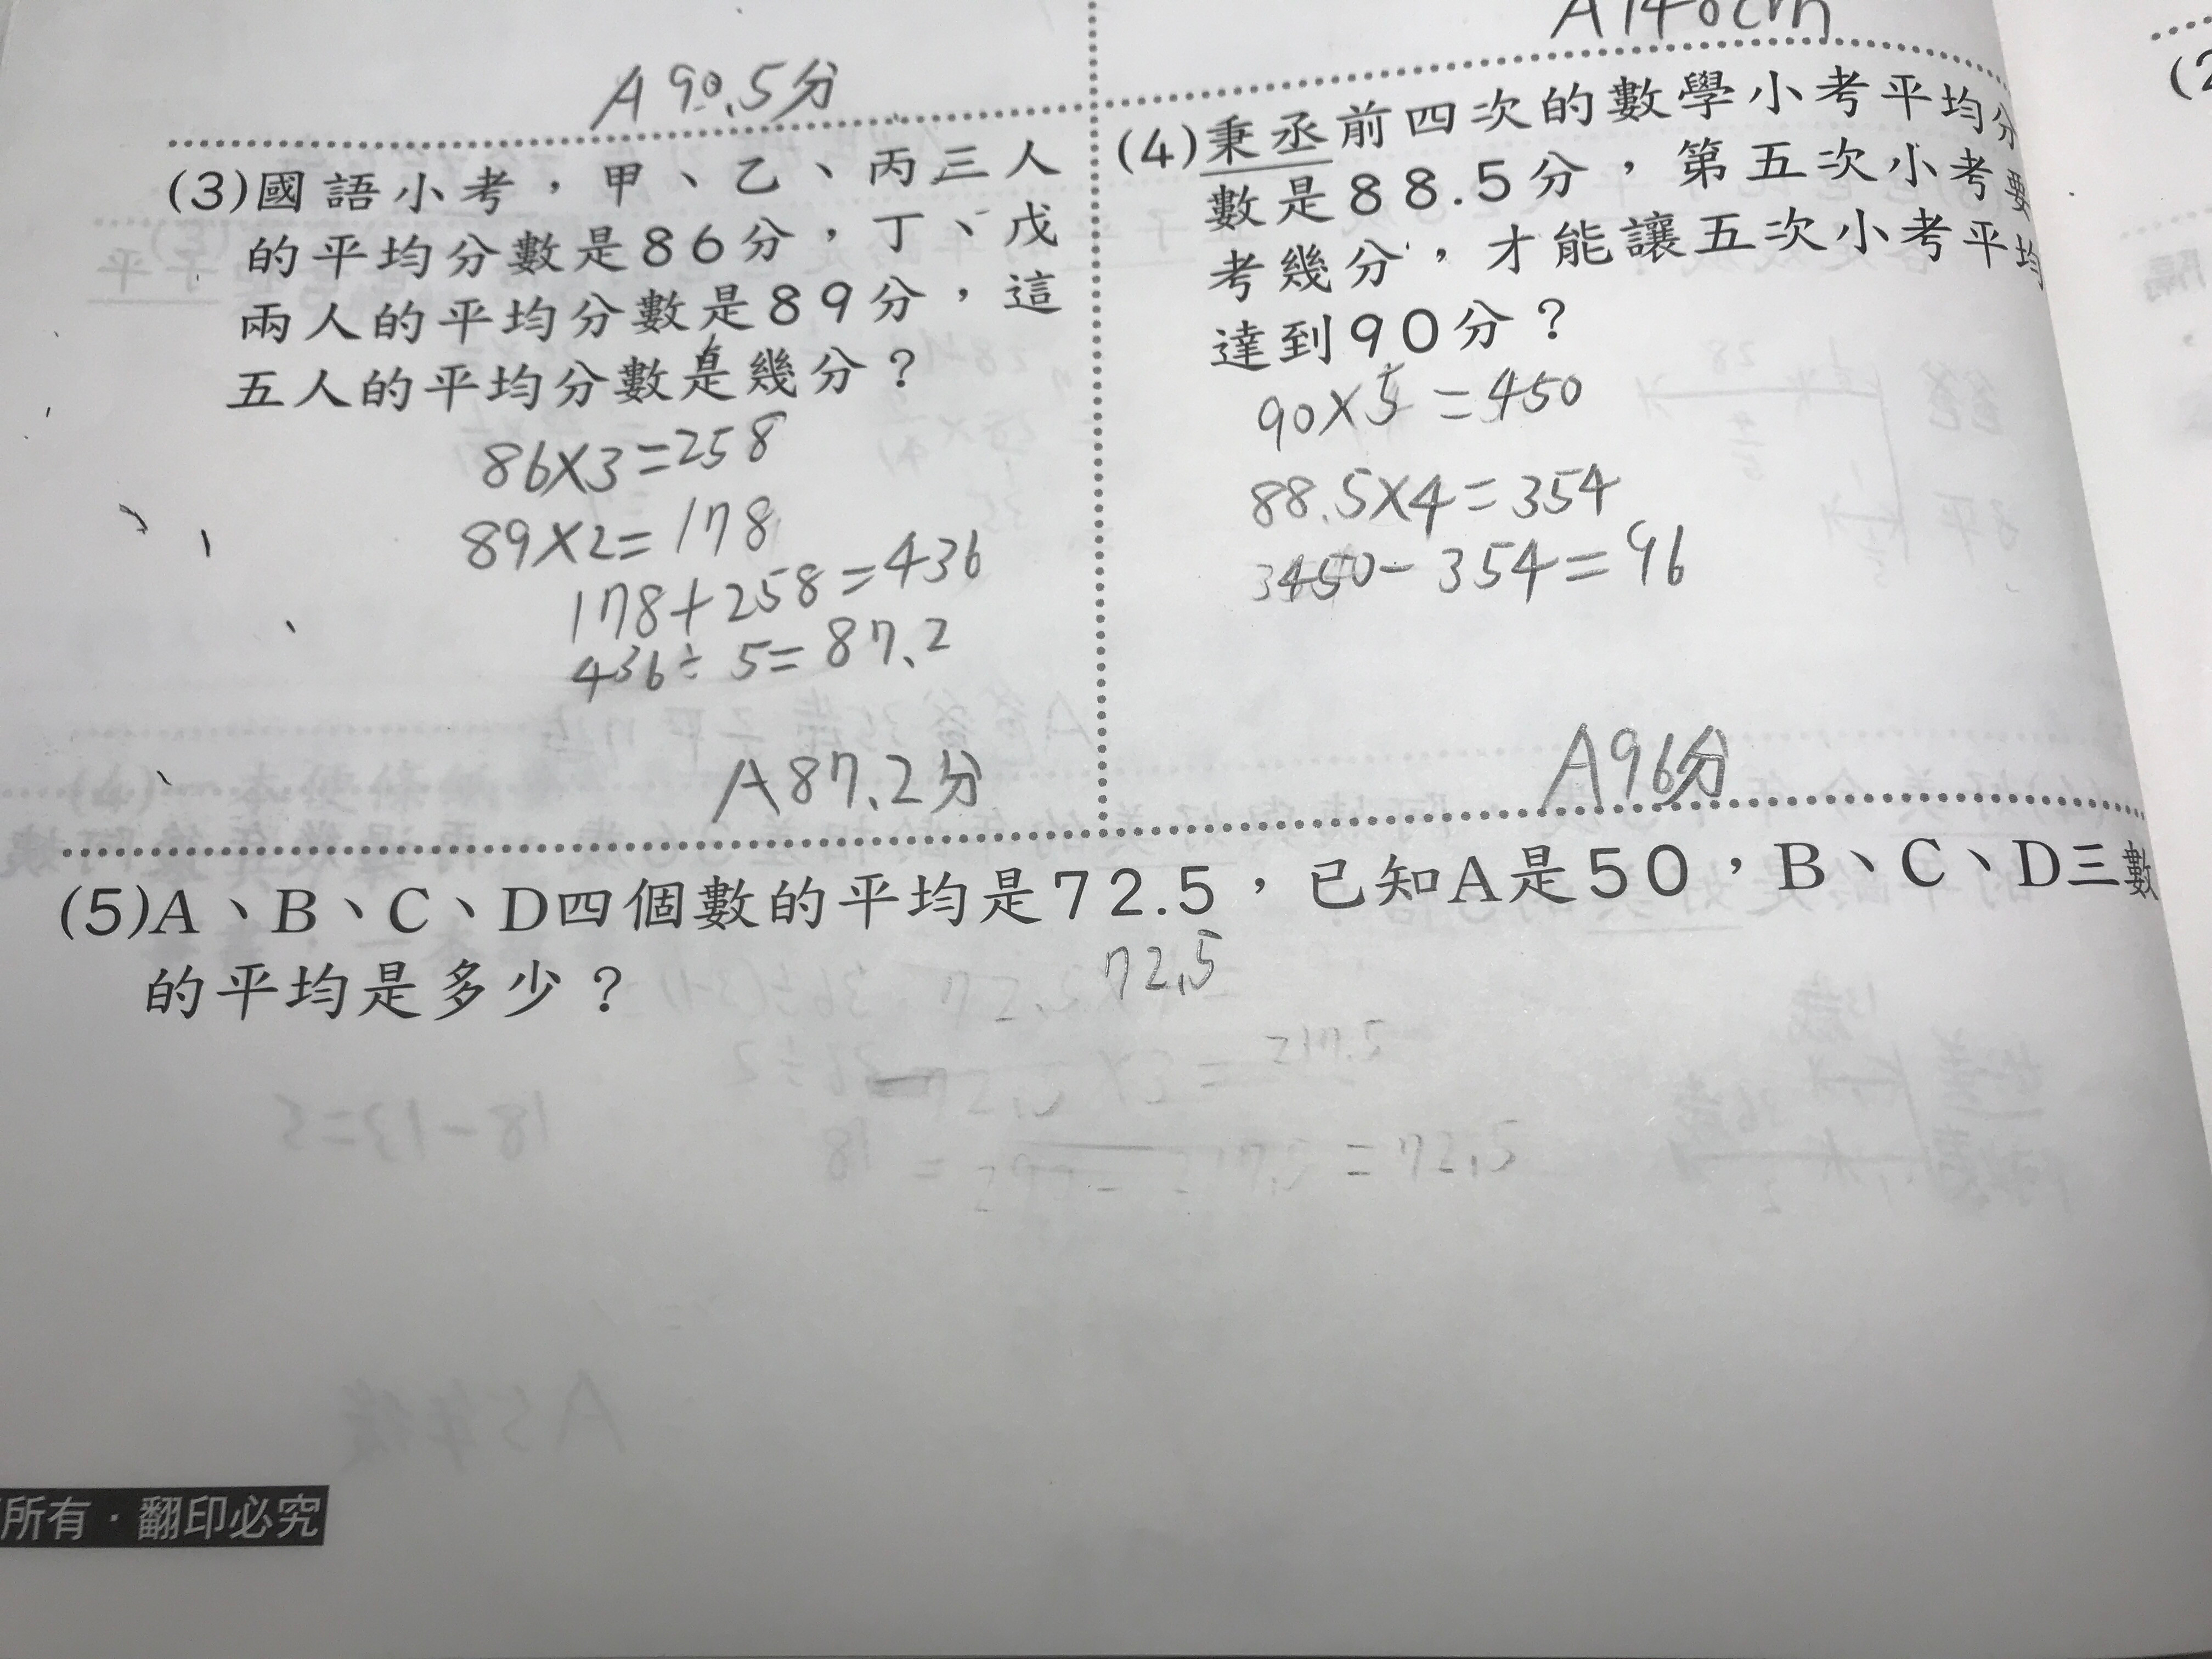 A 90.5分
(3)國語小考，甲、乙、丙三人
的平均分數是86分，丁、戊
兩人的平均分數是89分，這
五人的平均分數是幾分？
86×3=258
89×2=178
178+258=436
436÷5=87.2
A 87.2分
A 140cm
(4)秉丞前四次的數學小考平均分
數是88.5分，第五次小考要
考幾分，才能讓五次小考平均
達到90分？
90×5=450
88.5×4=354
450-354=96
A 96分
(5)A、B、C、D四個數的平均是72.5，已知A是50，B、C、D三數
的平均是多少？
72.5
217.5
=72.5
所有·翻印必究